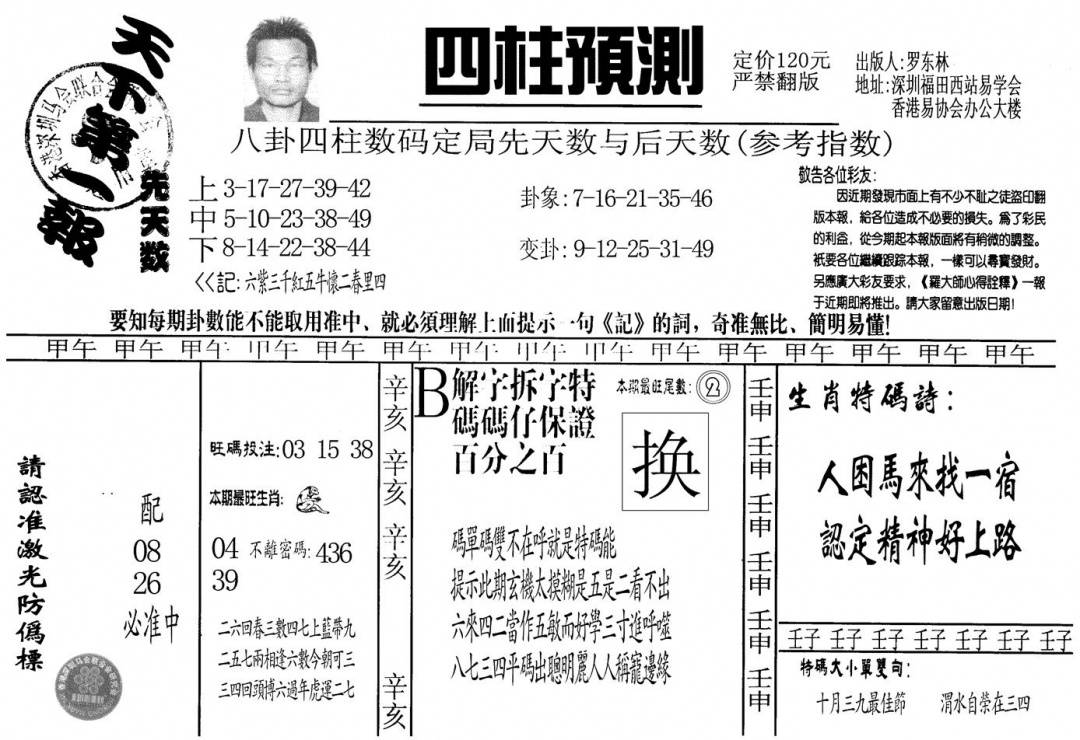 天下第一報
四柱預測
定价120元
严禁翻版
出版人:罗东林
地址:深圳福田西站易学会
香港易协会办公大楼
八卦四柱数码定局先天数与后天数(参考指数)
先天数
上3-17-27-39-42
中5-10-23-38-49
下8-14-22-38-44
<<記:六紫三千紅五牛懷二春里四
卦象:7-16-21-35-46
变卦:9-12-25-31-49
敬告各位彩友:
因近期發現市面上有不少不耻之徒盜印翻
版本報,給各位造成不必要的損失。爲了彩民
的利益,從今期起本報版面將有稍微的調整。
衹要各位繼續跟踪本報,一樣可以尋寶發財。
另應廣大彩友要求,《羅大師心得詮釋》一報
于近期即將推出。請大家留意出版日期!
要知每期卦數能不能取用准中、就必須理解上面提示一句《記》的詞,奇准無比、簡明易懂!
甲午 甲午 甲午 甲午 甲午 甲午 甲午 甲午 甲午 甲午 甲午 甲午 甲午 甲午 甲午
請認准激光防僞標
配
08
26
必准中
旺碼投注:03 15 38
本期最旺生肖:
04 不離密碼:436
39
二六回春三數四七上藍帶九
二五七兩相逢六數今朝可三
三四回頭博六過年虎運二七
辛亥
辛亥
辛亥
辛亥
B解字拆字特
碼碼仔保證
百分之百
本期最旺尾數:2
换
碼單碼雙不在呼就是特碼能
提示此期玄機太摸糊是五是二看不出
六來四二當作五敏而好學三寸進呼噬
八七三四平碼出聰明麗人人稱寵邊緣
壬申
壬申
壬申
壬申
壬申
壬申
生肖特碼詩:
人困馬來找一宿
認定精神好上路
壬子 壬子 壬子 壬子 壬子 壬子 壬子
特碼大小單雙句:
十月三九最佳節 渭水自荣在三四